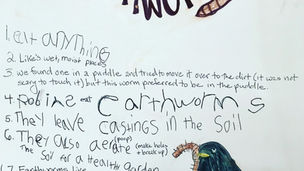 WOR
1. Eat anything
2. Like's wet, moist places
3 we found one in a puddle and tried to move it over to the dirt (it was not
scary to touch) but this worm preferred to be in the puddle.
4. Robins eat earthworms
5. They leave casings in the soil
(poops)
6. They Also aerate (make holes
+ break up)
The soil for a Healthy garden
7.